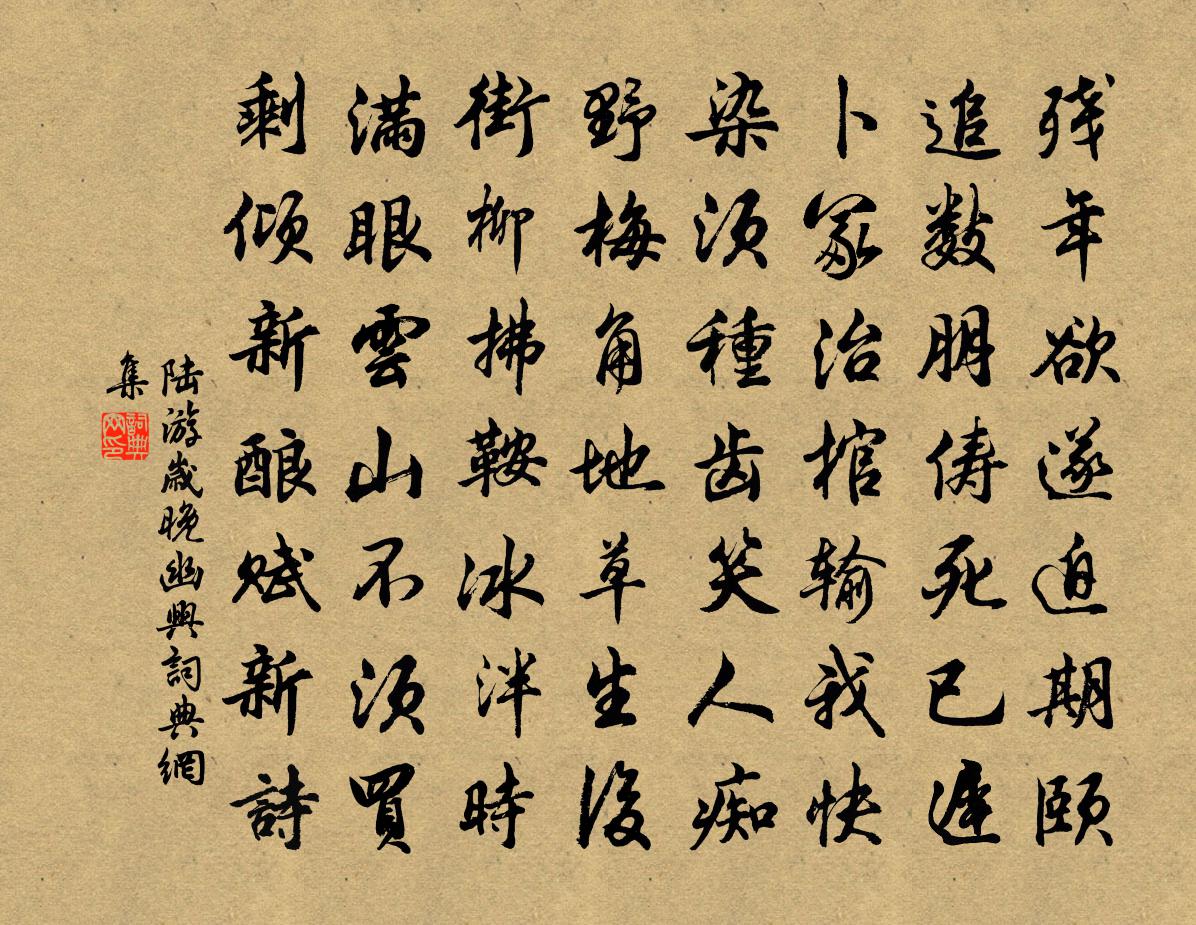 残年欲遂迫期颐
追数朋俦死已遲
卜冢治棺输我快
染须種齿笑人痴
野梅角地草生後
街柳拂鞍冰泮時
满眼雲山不须買
剩倾新酿赋新詩
陆游歲晚幽興詞典網
集
詞典网印